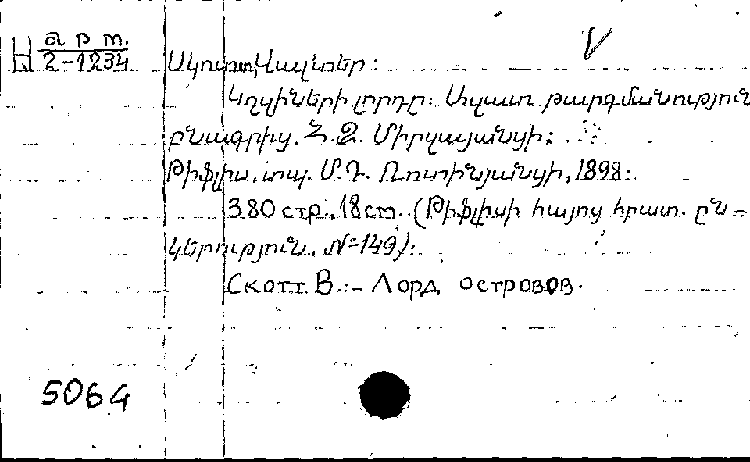 арт.
2-1234
Սկոտտ, Վալտեր:
Կղզիների լորդը: Ազատ թարգմանություն
բնագրից. Հ. Զ. Միրզայանցի:
Թիֆլիս, տպ. Մ. Դ. Ռոտինյանցի, 1898:
380 стр., 18 см. (Թիֆլիսի հայոց հրատ. ըն-
կերություն. №-149):
Скотт. В. :- Лорд островов.
5064